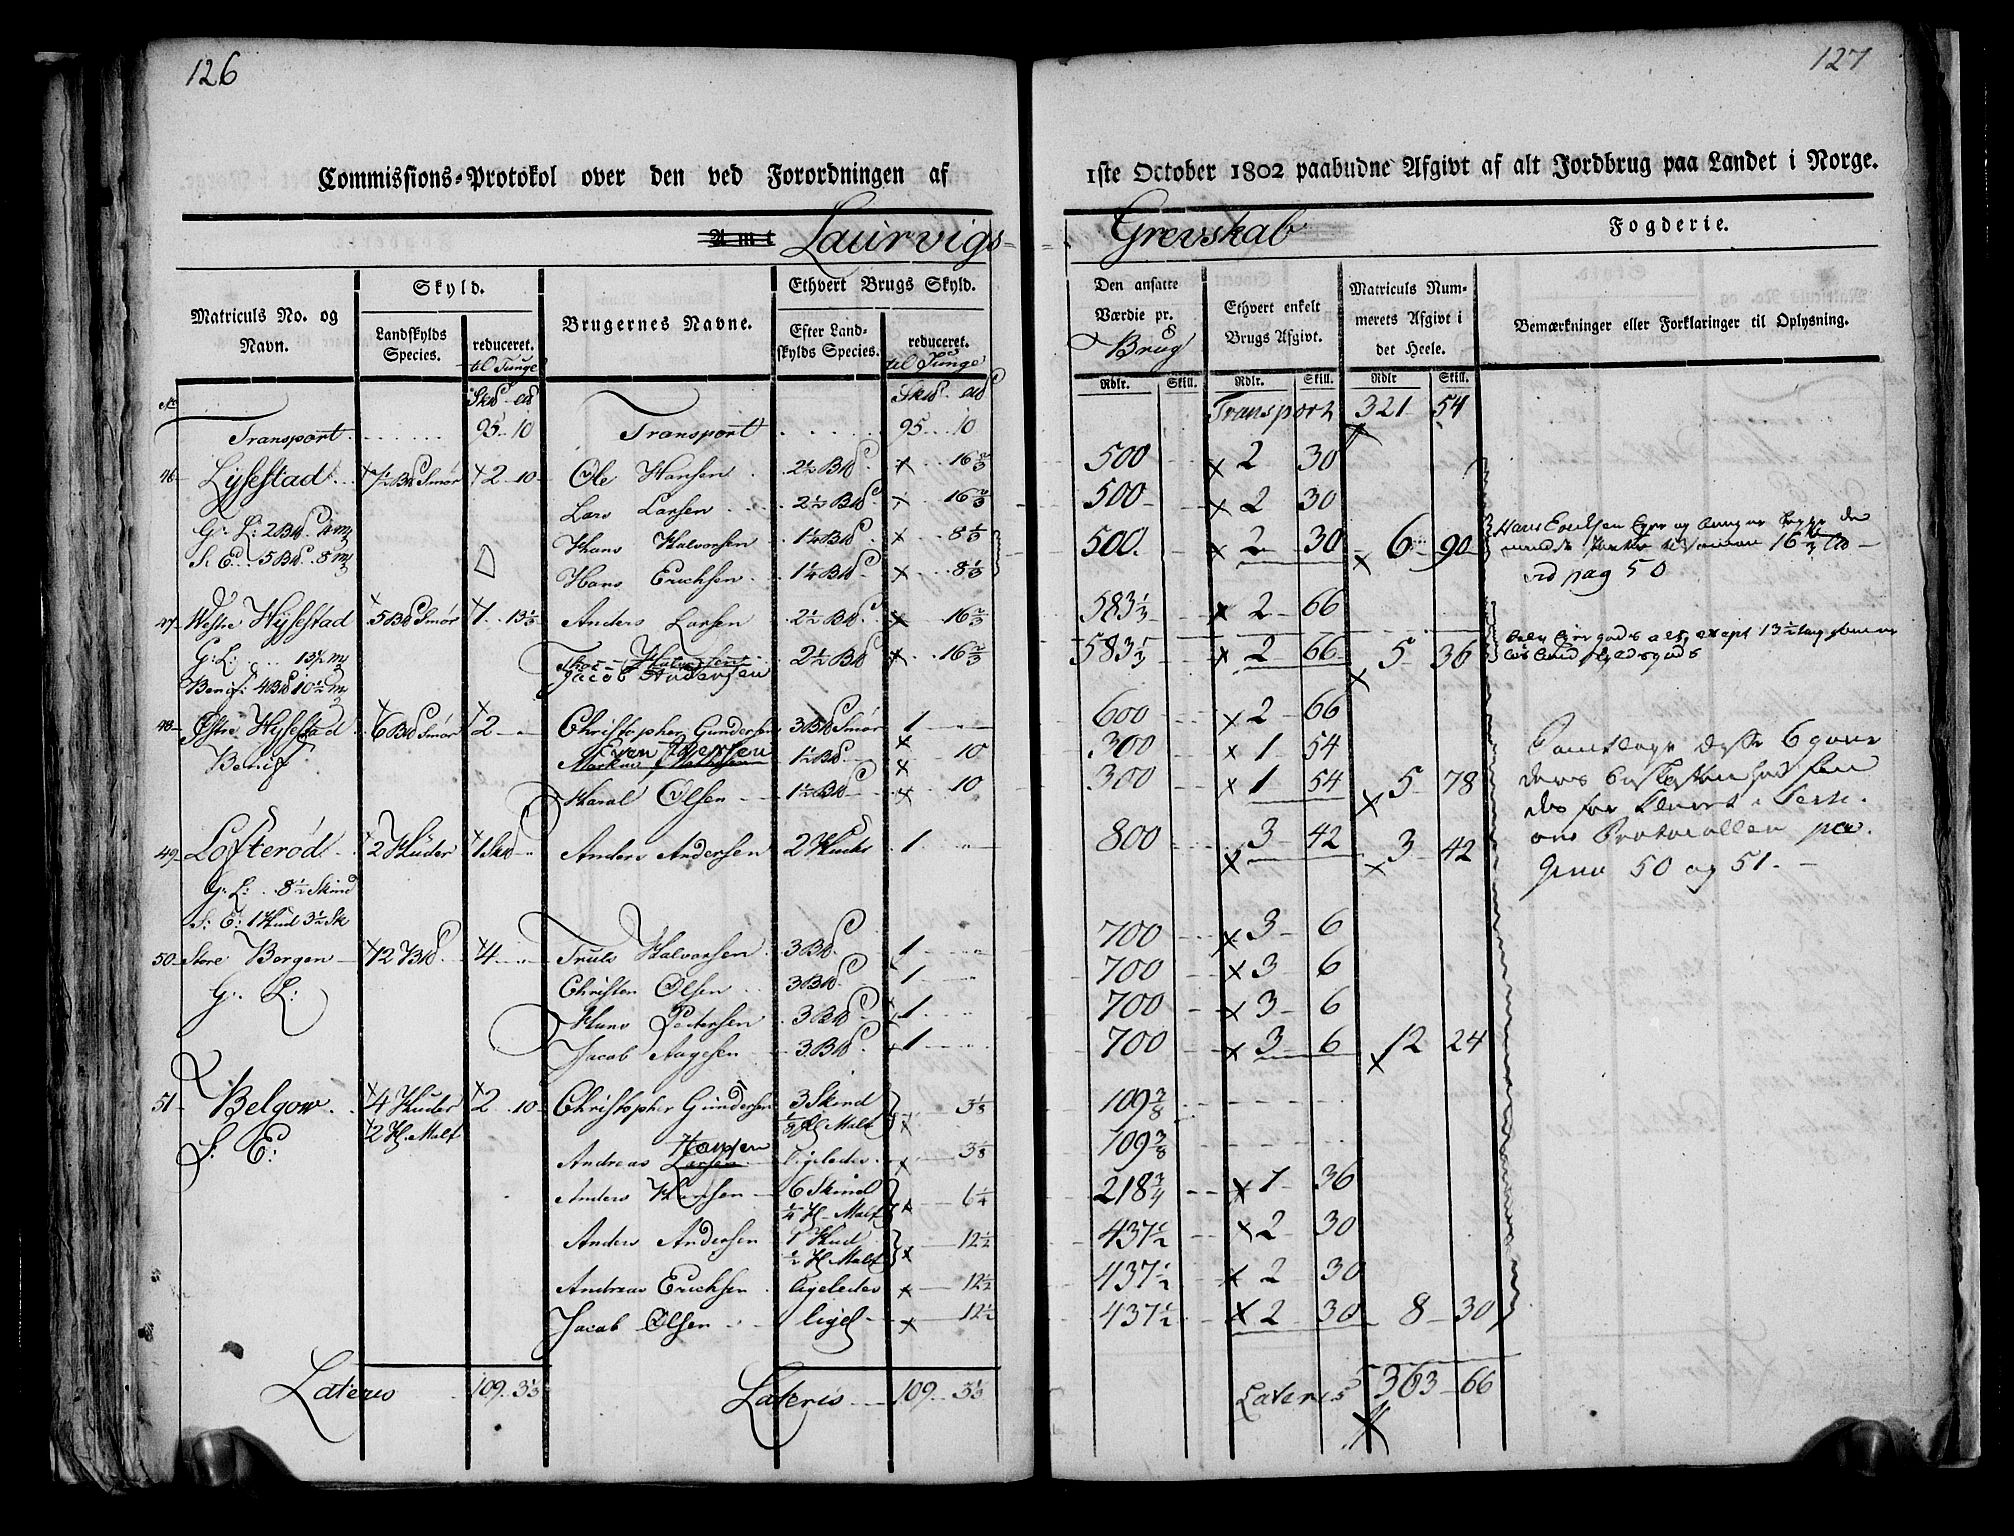 126
Commissions-Protokol over den ved Forordningen af
Amt Laurvigs-
Matriculs No. og Navn.
Skyld.
Landskylds Species.
reduceret. til Tunge
Brugernes Navne.
Ethvert Brugs Skyld.
Efter Landskylds Species.
reduceret. til Tunge
No
Transport 95 10 Transport 95 10
46 Lyssestad 7½ Bd Smør 2 10 Ole Hansen 2½ Bd 16⅔
Lars Larsen 2½ Bd 16⅔
G: L: 2 Bd
Hans Halvorsen 1¼ Bd 8⅓
S: E: 5 Bd 8
Hans Erichsen 1¼ Bd 8⅓
47 Westre Hysestad 5 Bd Smør 1 13⅓ Anders Larsen 2½ Bd 16⅔
G: L: 13½
Halvorsen
Jacob Andersen 2½ Bd 16⅔
Benif: 4 Bd 10½
48 Østre Hysestad 6 Bd Smør 2 Christopher Gundersen 3 Bd Smør 1
Benif
Even Iversen 1½ Bd 10
Olsen 1½ Bd 10
49 Lofterød 2 Huder 1 Skd Anders Andersen 2 Huder 1
G: L: 8½ Skind
S: E: 1 Hud 3½ Sk
50 Store Bergen 12 Bd 4 Truls Halvorsen 3 Bd 1
G: L:
Christen Olsen 3 Bd 1
Hans Pedersen 3 Bd 1
Jacob Aagesen 3 Bd 1
51 Belgow 4 Huder 2 10 Christopher Gundersen 3 Skind 3⅛
2 H. Malt ⅛ H. Malt
S: E:
Hansen
Andreas Larsen ligeledes 3⅛
Anders Hansen 6 Skind 6¼
¼ H. Malt
Anders Andersen 1 Hud 12½
½ H. Malt
Andreas Erichsen ligeledes 12½
Jacob Olsen ligel 12½
Lateris 109 3⅓ Lateris 109 3⅓
127
1ste October 1802 paabudne Afgivt af alt Jordbrug paa Landet i Norge.
Grevskab Fogderie.
Den ansatte Værdie pr. Brug
Ethvert enkelt Brugs Afgivt.
Matriculs Nummerets Afgivt i det Heele.
Bemærkninger eller Forklaringer til Oplysning.
Rdlr. Skill. Rdlr. Skill. Rdlr Skill.
Transport 321 54
500 2 30
500 2 30
500 2 30 6 90
Hans Erichsen Eger og
16⅔
vid pag 50
583⅓ 2 66
583⅓ 2 66 5 36
600 2 66
300 1 54
300 1 54 5 78
800 3 42 3 42
6
Protocollen pa-
gina 50 og 51.
700 3 6
700 3 6
700 3 6
700 3 6 12 24
109⅜
109⅜
218¾ 1 36
437½ 2 30
437½ 2 30
437½ 2 30 8 30
Lateris 363 66